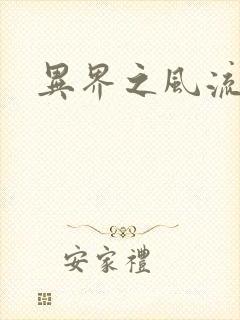 異界之風流
安家禮